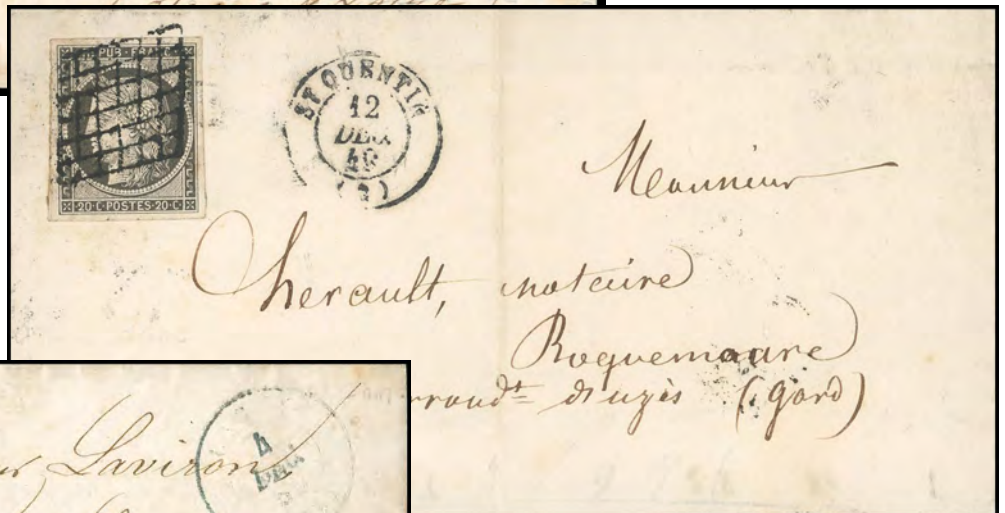 REPUB·FRANC
20·C·POSTES·20·C
ST QUENTIN
12
DEC.
49
(2)
Monsieur
Cherault, notaire
Roquemaure
d'uzès (Gard)
Laviron
4
DEC.